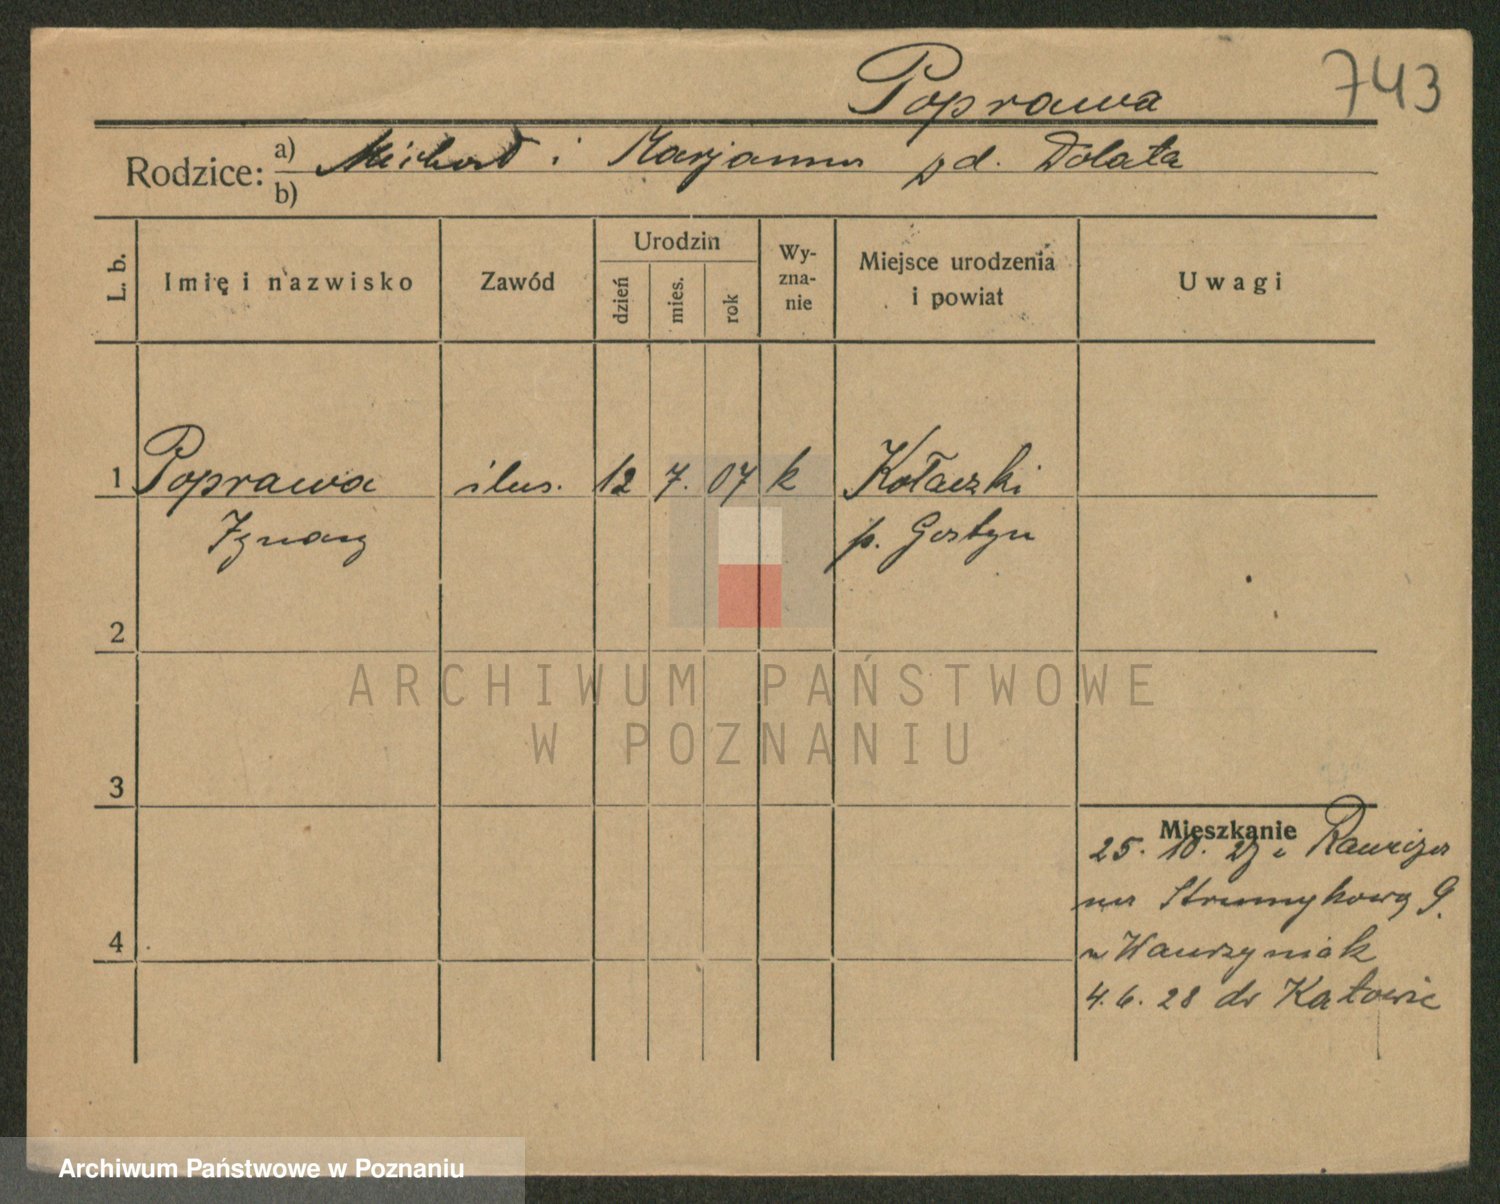 Poprawa 743
Rodzice: a) Michał i Marjanna z d. Dolata
b)
L. b. Imię i nazwisko Zawód Urodzin Wyznanie Miejsce urodzenia i powiat Uwagi
dzień mies. rok
1 Poprawa ślus. 12 7. 07 k Kołaczki
Ignacy p. Gostyn
2
ARCHIWUM PAŃSTWOWE
W POZNANIU
3
Mieszkanie
25. 10. 27 z Rawicza
na Strumykową 9.
u Wawrzyniak
4. 6. 28 do Katowic
4
Archiwum Państwowe w Poznaniu